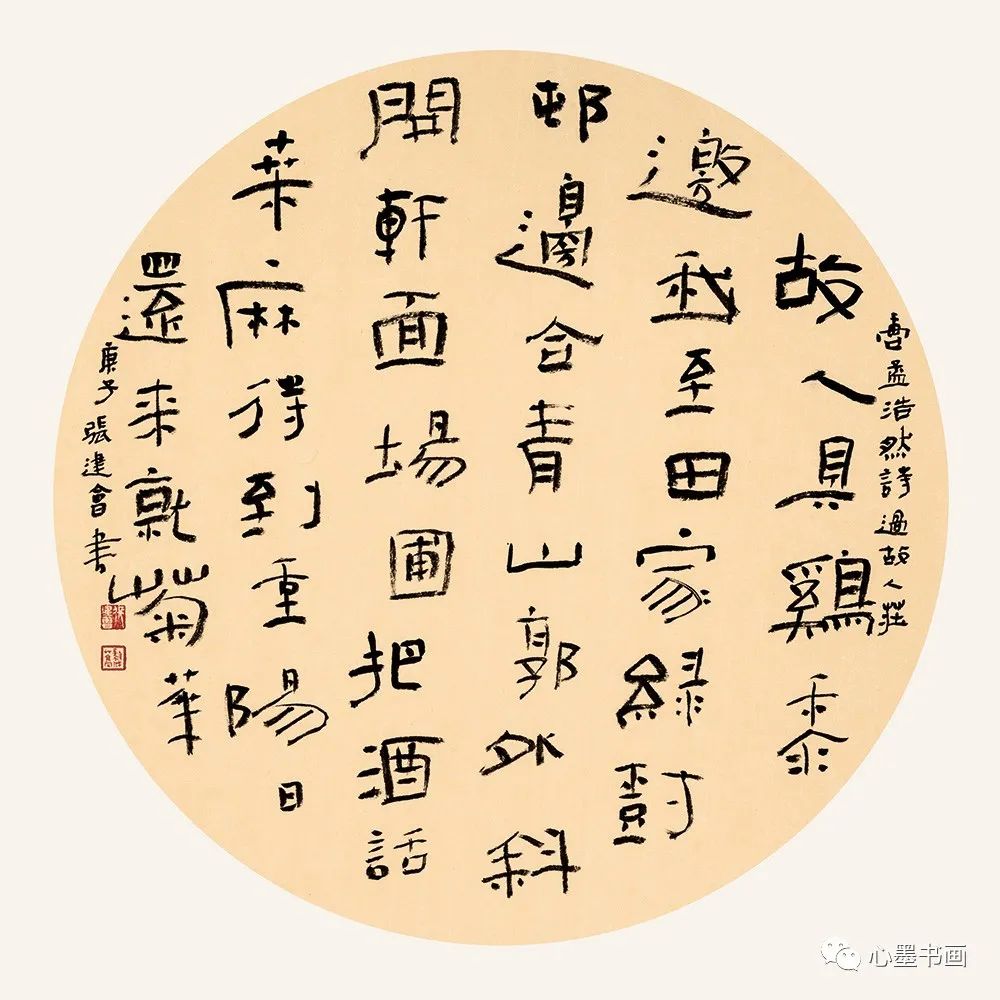 孟浩然詩過故人莊
故人具鷄黍
邀我至田家綠樹
邨邊合青山郭外斜
開軒面場圃把酒話
桑麻待到重陽日
還来就菊華
庚子張建會書
心墨书画